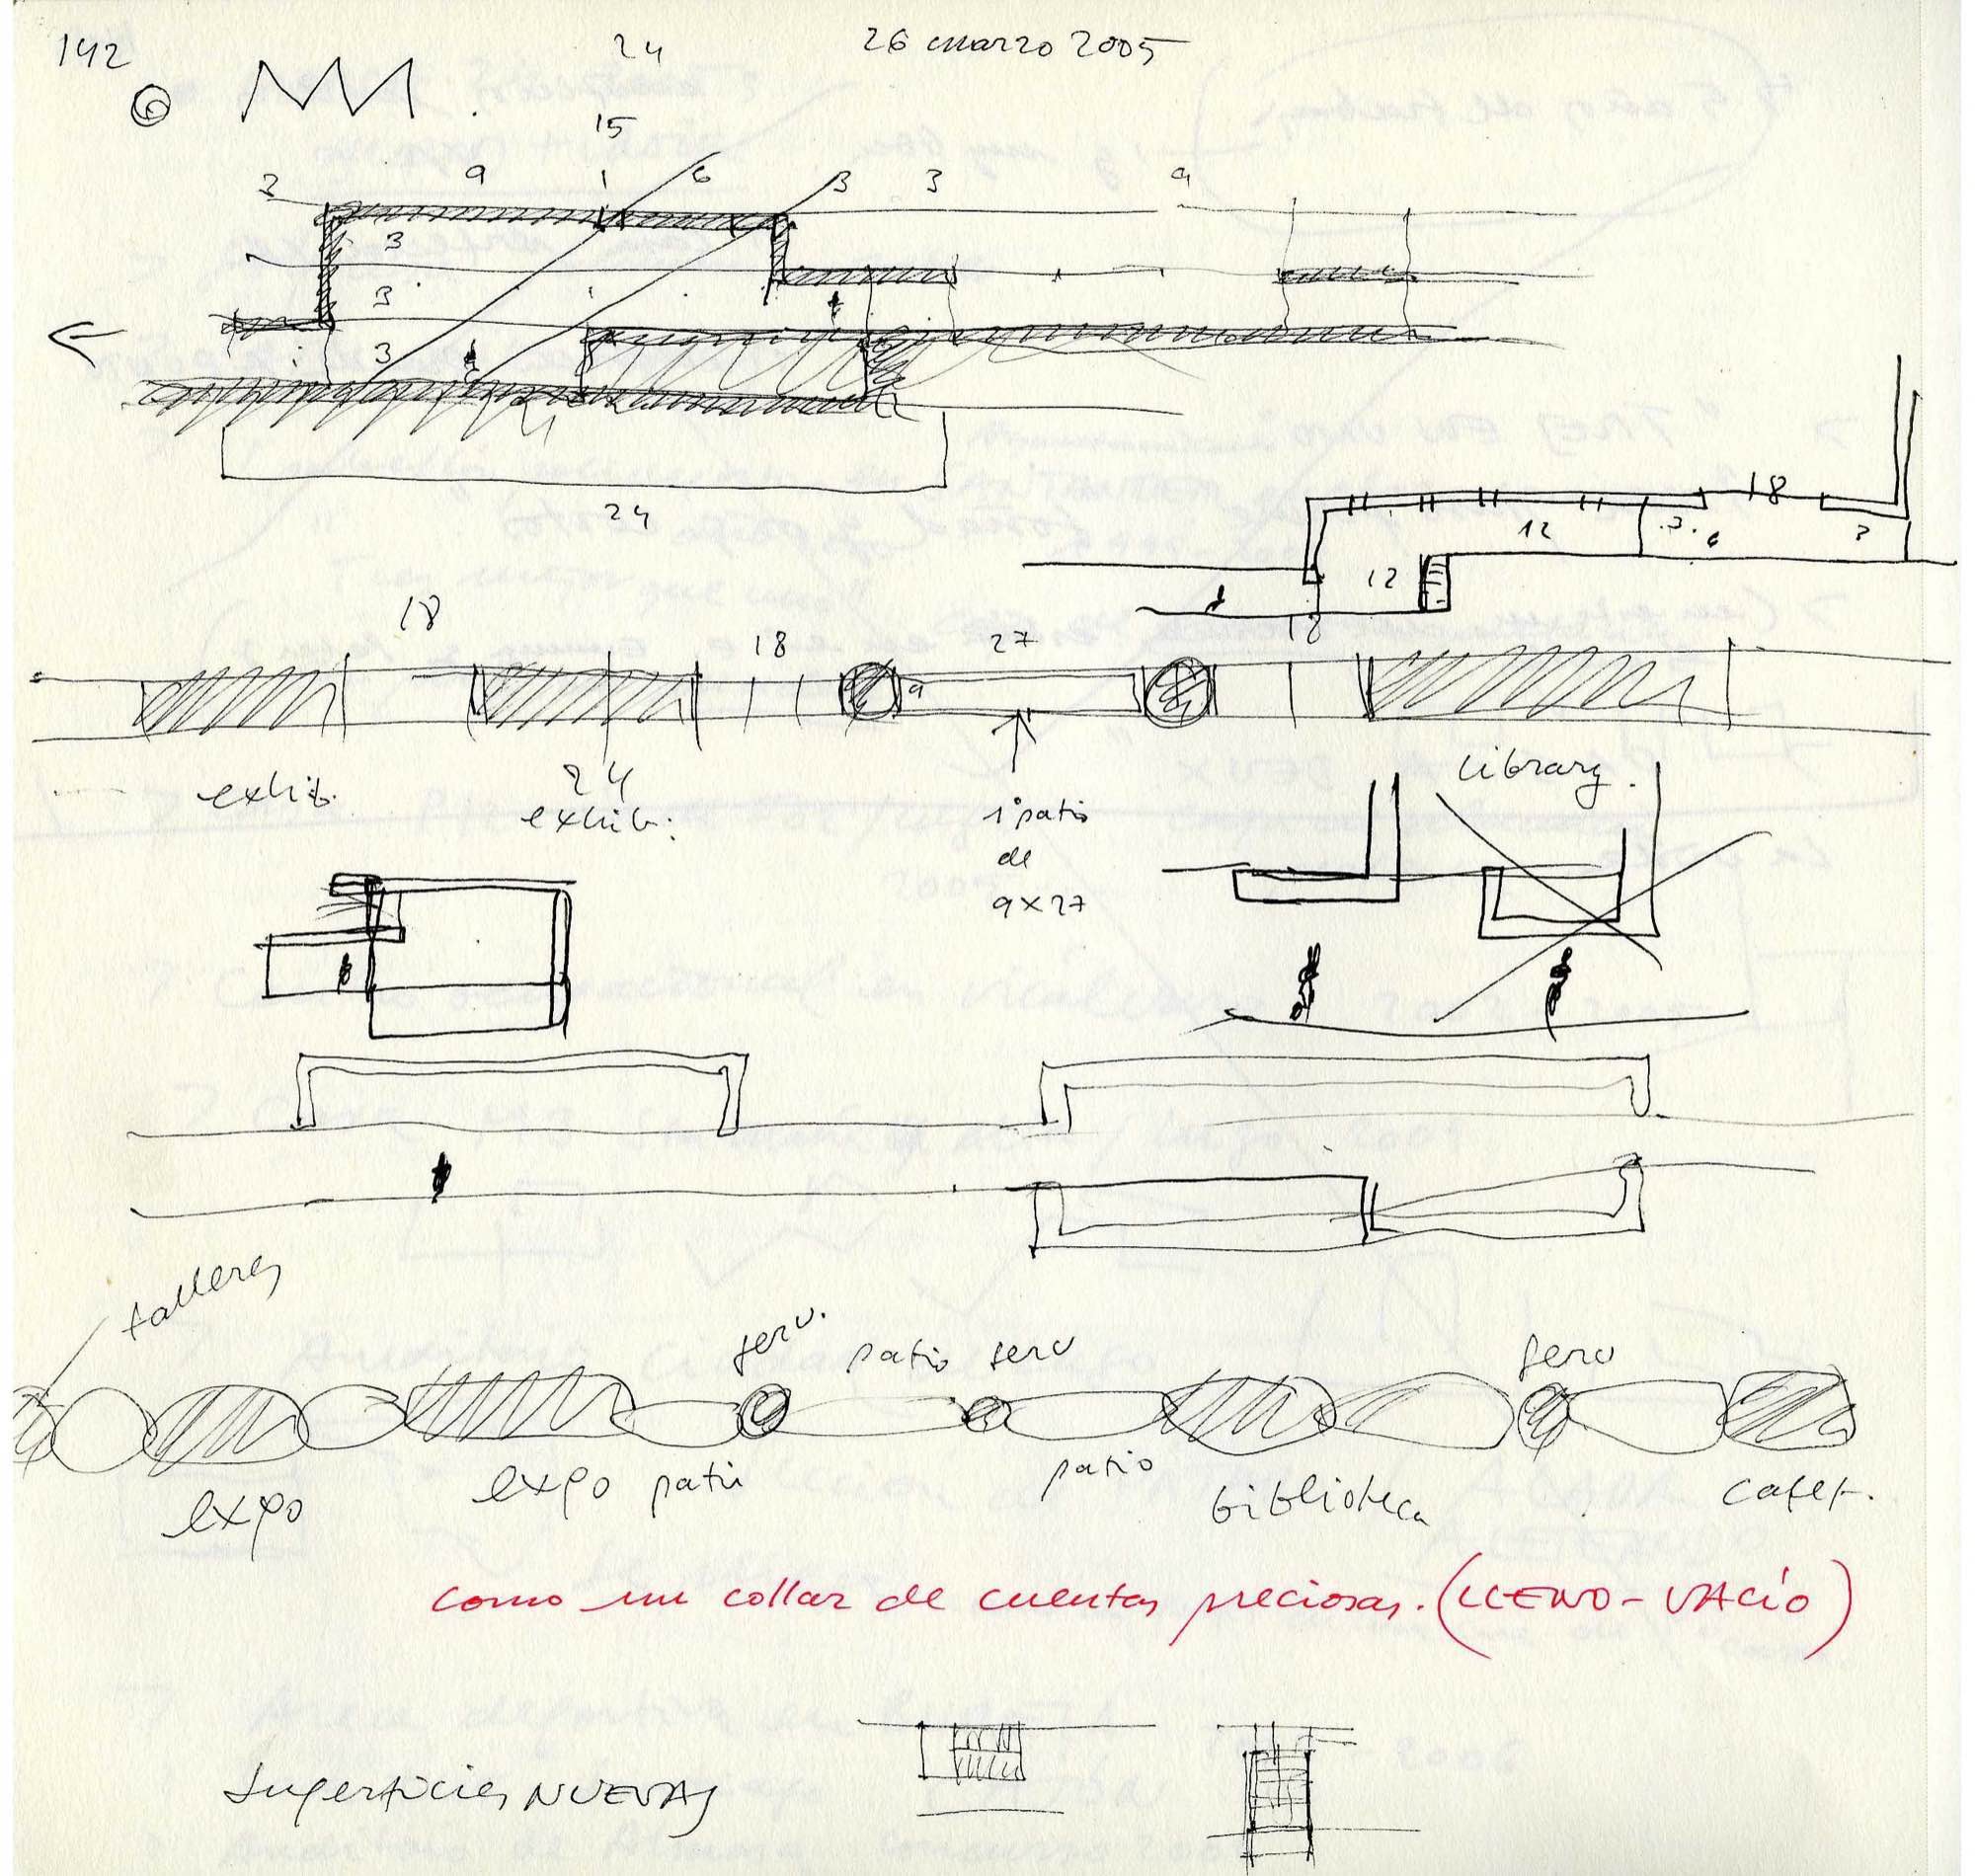 142
24
26 marzo 2005
6
15
2 9 1 6 3 3 9
3
3
3
24
18
12 3. 6 3
12
18
18 18 27
9
exhib.
24
exhib.
1º patio
de
9x27
library.
talleres
serv. patio serv serv
expo expo patio patio biblioteca cafet.
como un collar de cuentas preciosas. (LLENO-VACÍO)
Superficies NUEVAS